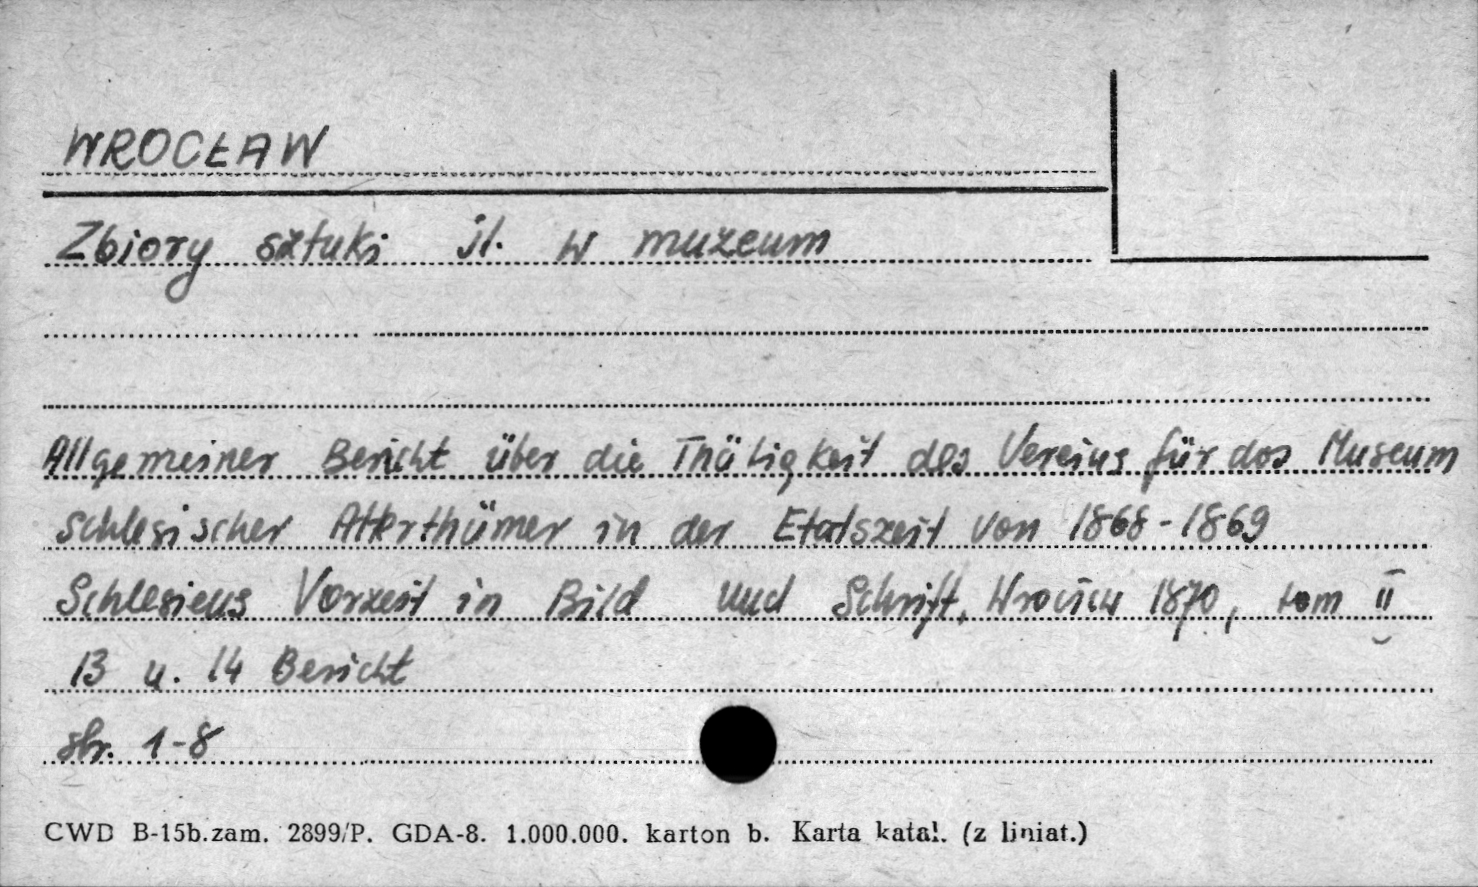 WROCŁAW
Zbiory sztuki śl. w muzeum
Allgemeiner Bericht über die Thätigkeit des Vereins für das Museum
Schlesischer Alterthümer in der Etatszeit von 1868-1869
Schlesiens Vorzeit in Bild und Schrift, 1870, tom II
13 u. 14 Bericht
str. 1-8
CWD B-15b.zam. 2899/P. GDA-8. 1.000.000. karton b. Karta katal. (z liniat.)